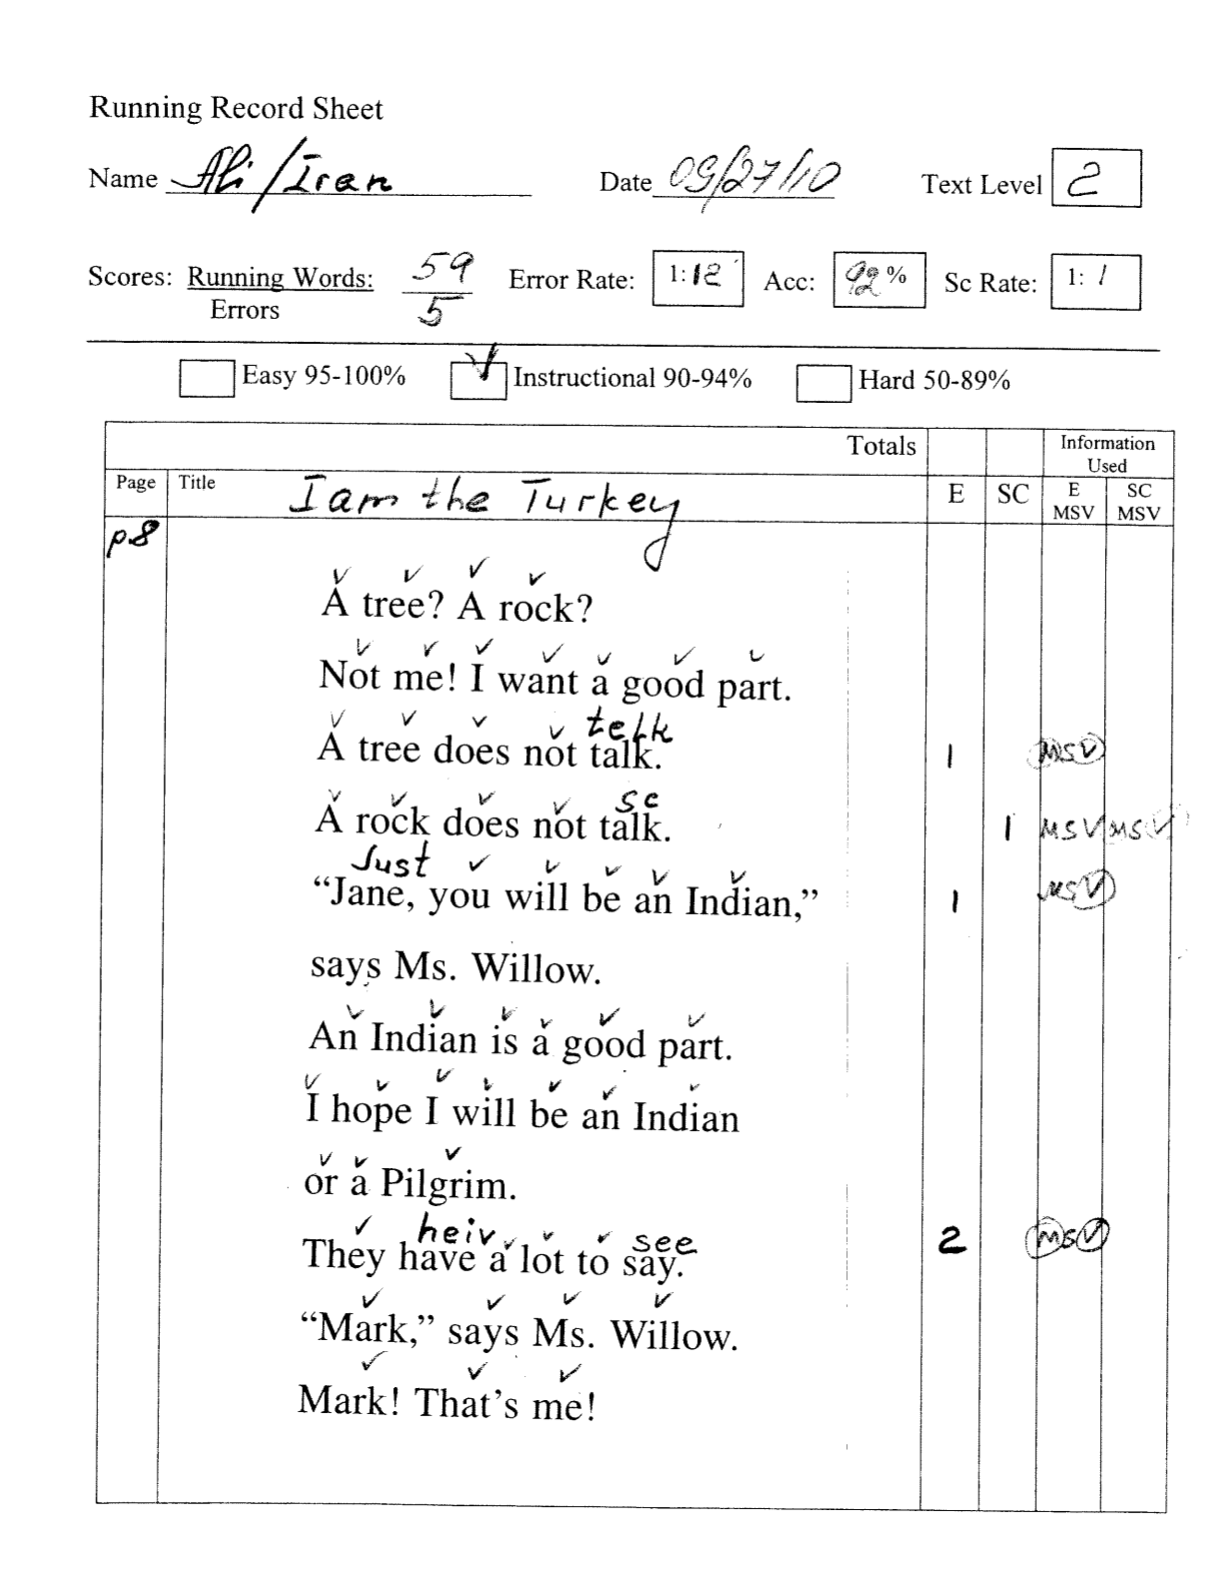 Running Record Sheet
Name Ali/Iran Date 09/27/10 Text Level 2
Scores: Running Words: 59 Error Rate: 1:12 Acc: 92% Sc Rate: 1: 1
Errors 5
Easy 95-100% ✓ Instructional 90-94% Hard 50-89%
Totals Information Used
Page Title I am the Turkey E SC E MSV SC MSV
p8
✓ ✓ ✓ ✓
A tree? A rock?
✓ ✓ ✓ ✓ ✓ ✓ ✓
Not me! I want a good part.
✓ ✓ ✓ ✓ telk
A tree does not talk. 1 MSV
✓ ✓ ✓ ✓ sc
A rock does not talk. 1 MSV MSV
Just ✓ ✓ ✓ ✓ ✓
“Jane, you will be an Indian,” 1 MSV
says Ms. Willow.
✓ ✓ ✓ ✓ ✓ ✓
An Indian is a good part.
✓ ✓ ✓ ✓ ✓ ✓ ✓
I hope I will be an Indian
✓ ✓ ✓
or a Pilgrim.
✓ heiv ✓ ✓ ✓ see
They have a lot to say. 2 MSV
✓ ✓ ✓ ✓
“Mark,” says Ms. Willow.
✓ ✓ ✓
Mark! That’s me!